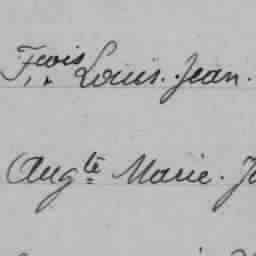 Fcois Louis. Jean.
Augte Marie. J